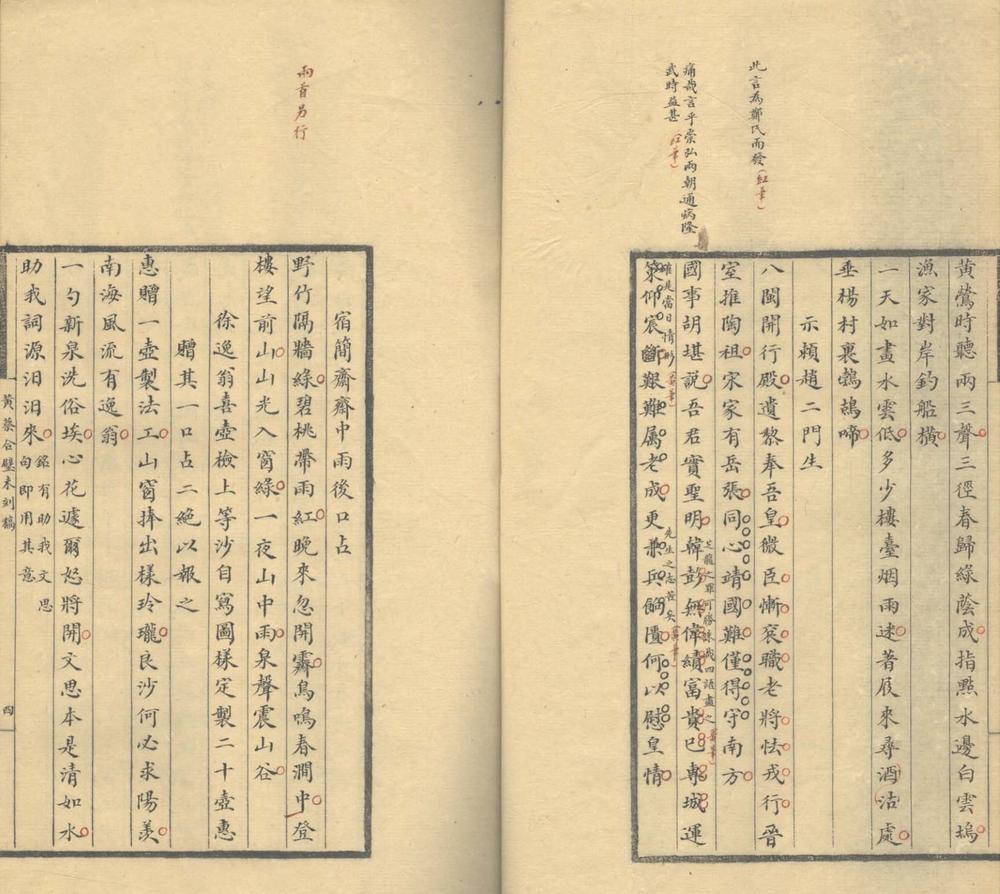 此言為鄭氏而發(紅筆)
痛哉言乎崇弘兩朝通病隆
武時益甚(紅筆)
黃鶯時聽兩三聲三徑春歸綠蔭成指點水邊白雲塢
漁家對岸釣船橫
一天如畫水雲低多少樓臺烟雨迷著屐來尋酒沽處
垂楊村裏鷓鴣啼
示賴趙二門生
八閩開行殿遺黎奉吾皇微臣慚袞職老將怯戎行晉
室推陶祖宋家有岳張同心靖國難僅得守南方
芝龍之罪可勝誅哉四語盡之
國事胡堪說吾君實聖明韓彭無偉績富貴已專城運
先生之志苦矣
確是當日情形
策仰宸斷艱難属老成更兼兵餉匱何以慰皇情
兩首另行
宿簡齋齋中雨後口占
野竹隔牆綠碧桃帶雨紅晚來忽開霽鳥鳴春澗中登
樓望前山山光入窗綠一夜山中雨泉聲震山谷
徐逸翁喜壺檢上等沙自寫圖樣定製二十壺惠
贈其一口占二絕以報之
惠贈一壺製法工山窗捧出樣玲瓏良沙何必求陽羨
南海風流有逸翁
一勺新泉洗俗埃心花遽爾怒將開文思本是清如水
助我詞源汨汨來銘有助我文思句即用其意
黃蔡合璧未刻稿
四